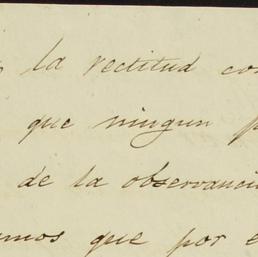 la rectitud con
que ningun p
de la observanci
mos que por e